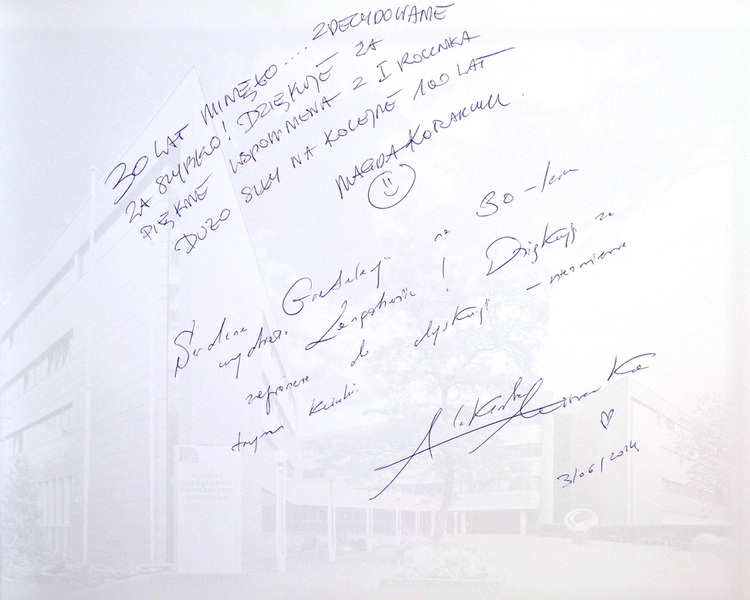 30 LAT MINĘŁO.... ZDECYDOWANIE
ZA SZYBKO! DZIĘKUJĘ ZA
PIĘKNE WSPOMNIENIA Z I ROCZNIKA
DUŻO SIŁY NA KOLEJNE 100 LAT
MAGDA
Serdeczne Gratulacje na 30-lecie
wydziału Zarządzania! Dziękuję za
zaproszenie do dyskusji - niezmiennie
trzymam kciuki.
3/06/2024